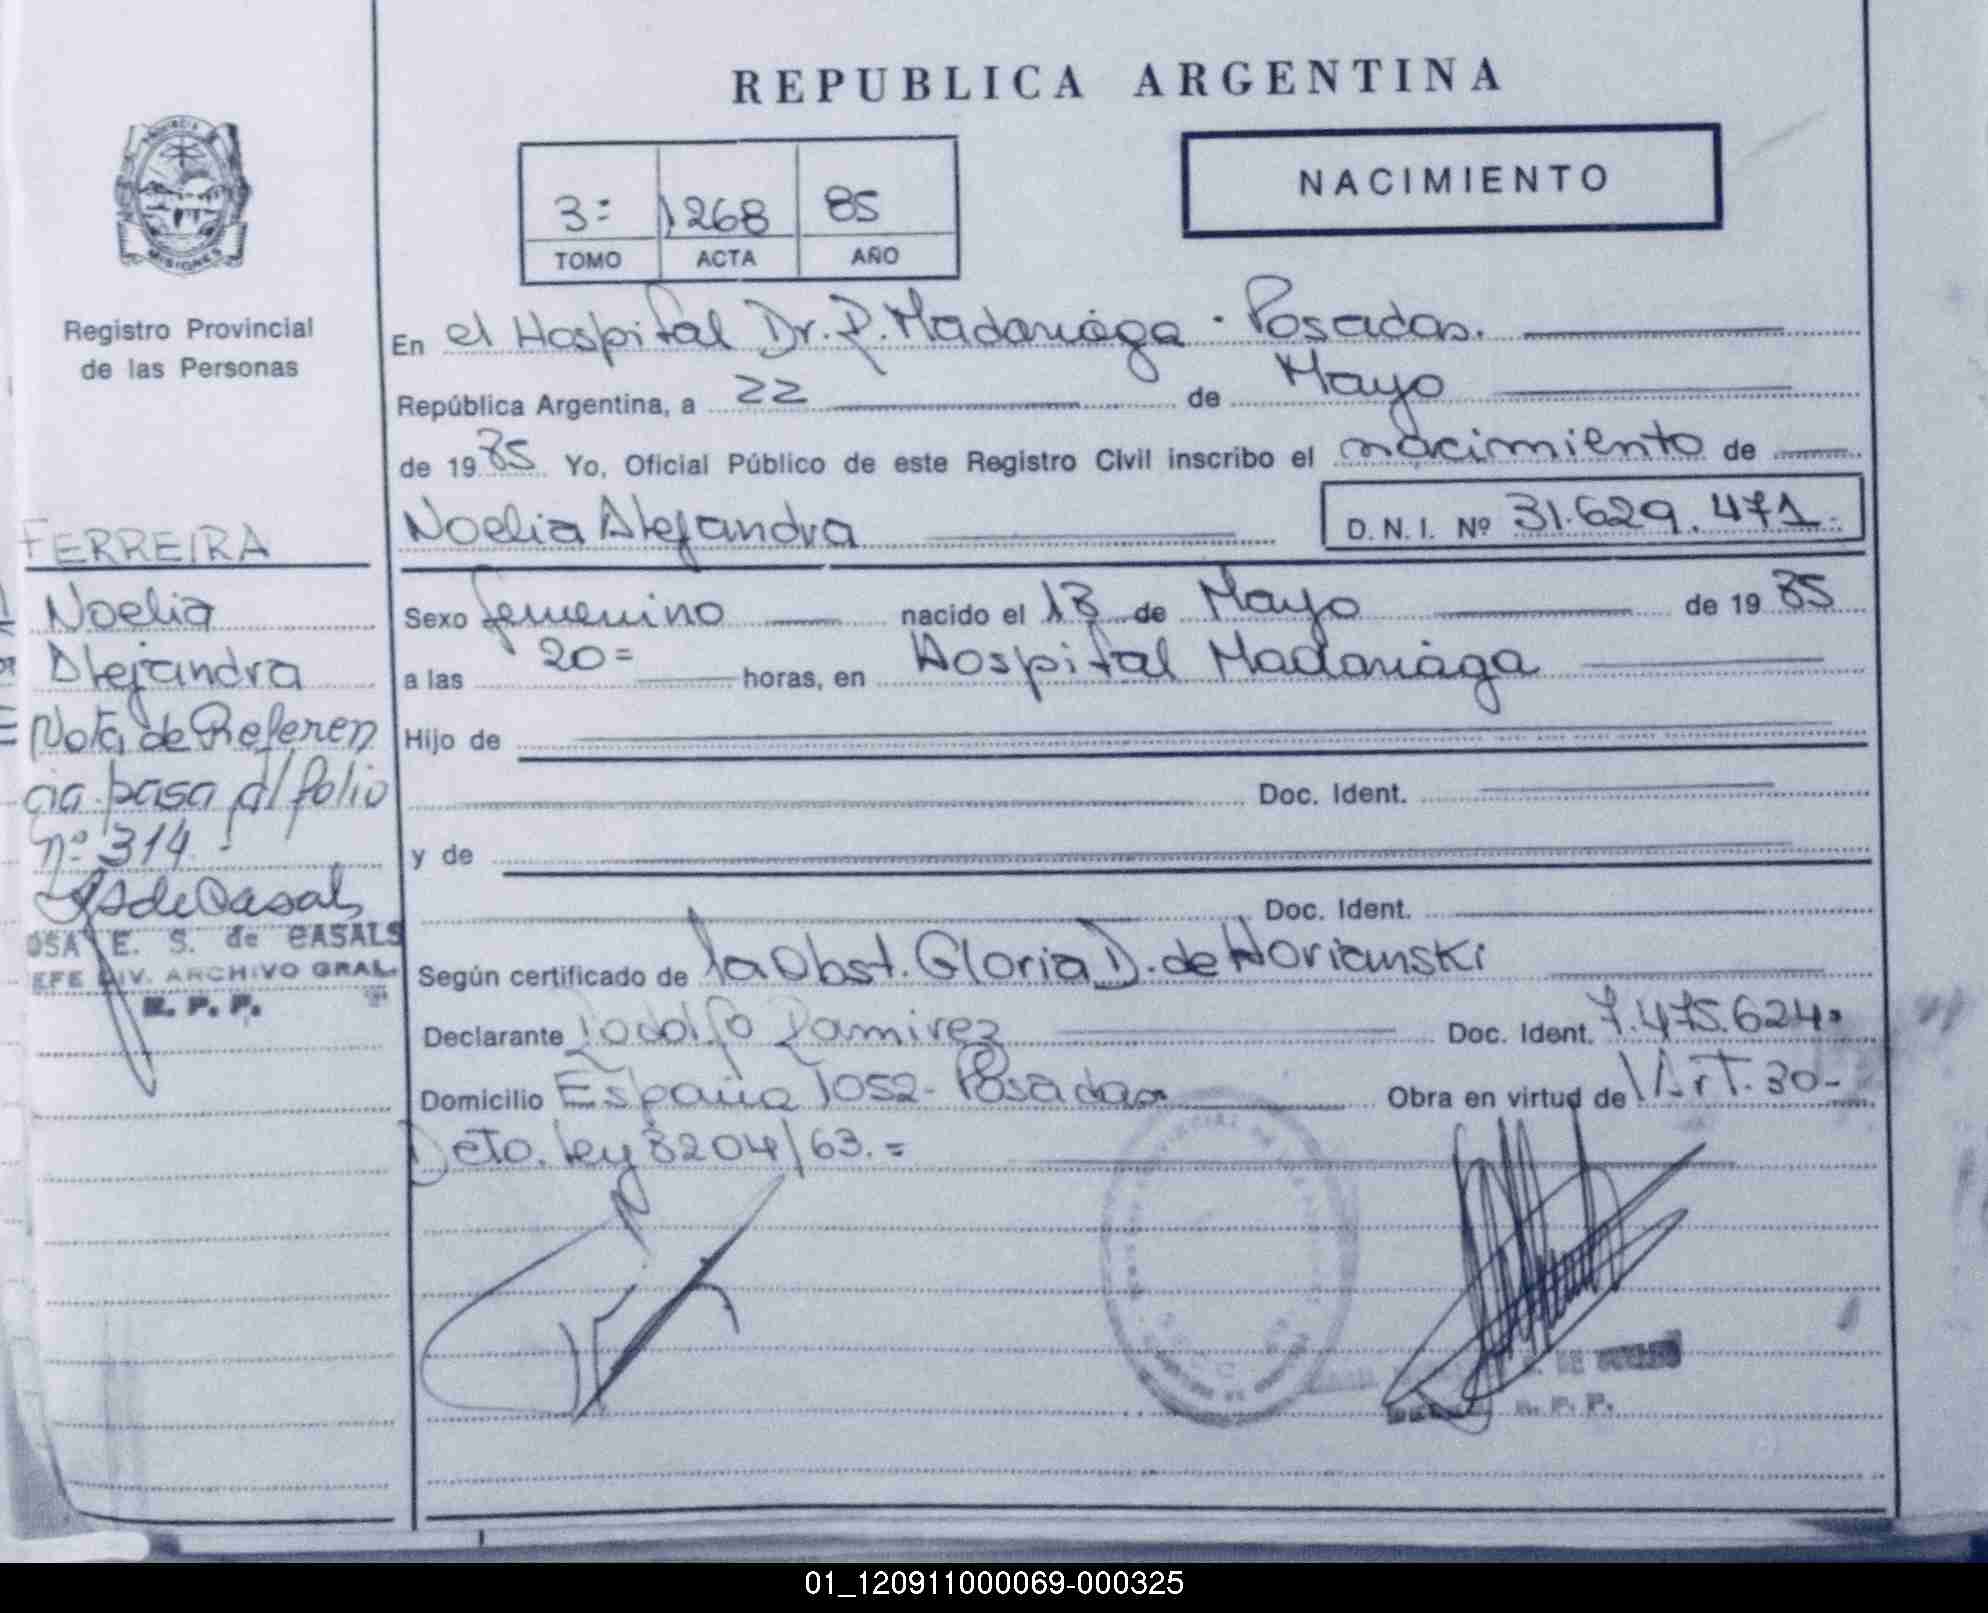 REPUBLICA ARGENTINA
PROVINCIA
MISIONES
Registro Provincial
de las Personas
3= 1268 85
TOMO ACTA AÑO
NACIMIENTO
En el Hospital Dr. R. Madariaga - Posadas.
República Argentina, a 22 de Mayo
de 1985 Yo, Oficial Público de este Registro Civil inscribo el nacimiento de
Noelia Alejandra D. N. I. Nº 31.629.471.-
FERREIRA
Noelia
Alejandra
Nota de Referen
cia pasa al folio
nº 314.-
E. S. de CASALS
DIV. ARCHIVO GRAL.
R. P. P.
Sexo femenino nacido el 13 de Mayo de 1985
a las 20= horas, en Hospital Madariaga
Hijo de
Doc. Ident.
y de
Doc. Ident.
Según certificado de la Obst. Gloria D. de
Declarante Rodolfo Ramirez Doc. Ident. 7.475.624=
Domicilio España 1052- Posadas Obra en virtud de Art. 30-
Dcto. Ley 8204/63.=
R. P. P.
01_120911000069-000325